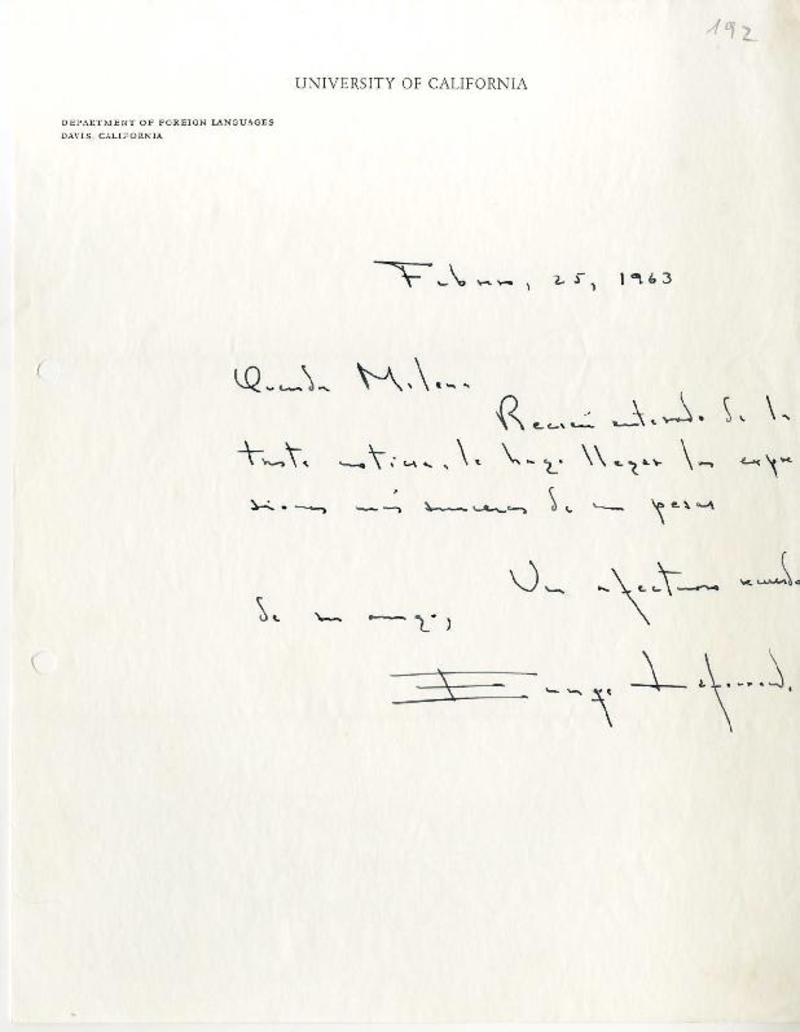 192
UNIVERSITY OF CALIFORNIA
DEPARTMENT OF FOREIGN LANGUAGES
DAVIS, CALIFORNIA
Febrero, 25, 1963
Querida Milena
Recién enterado de la
triste noticia, le hago llegar las expre
siones más sinceras de mi pesar
Un afectuoso recuerdo
de su amigo,